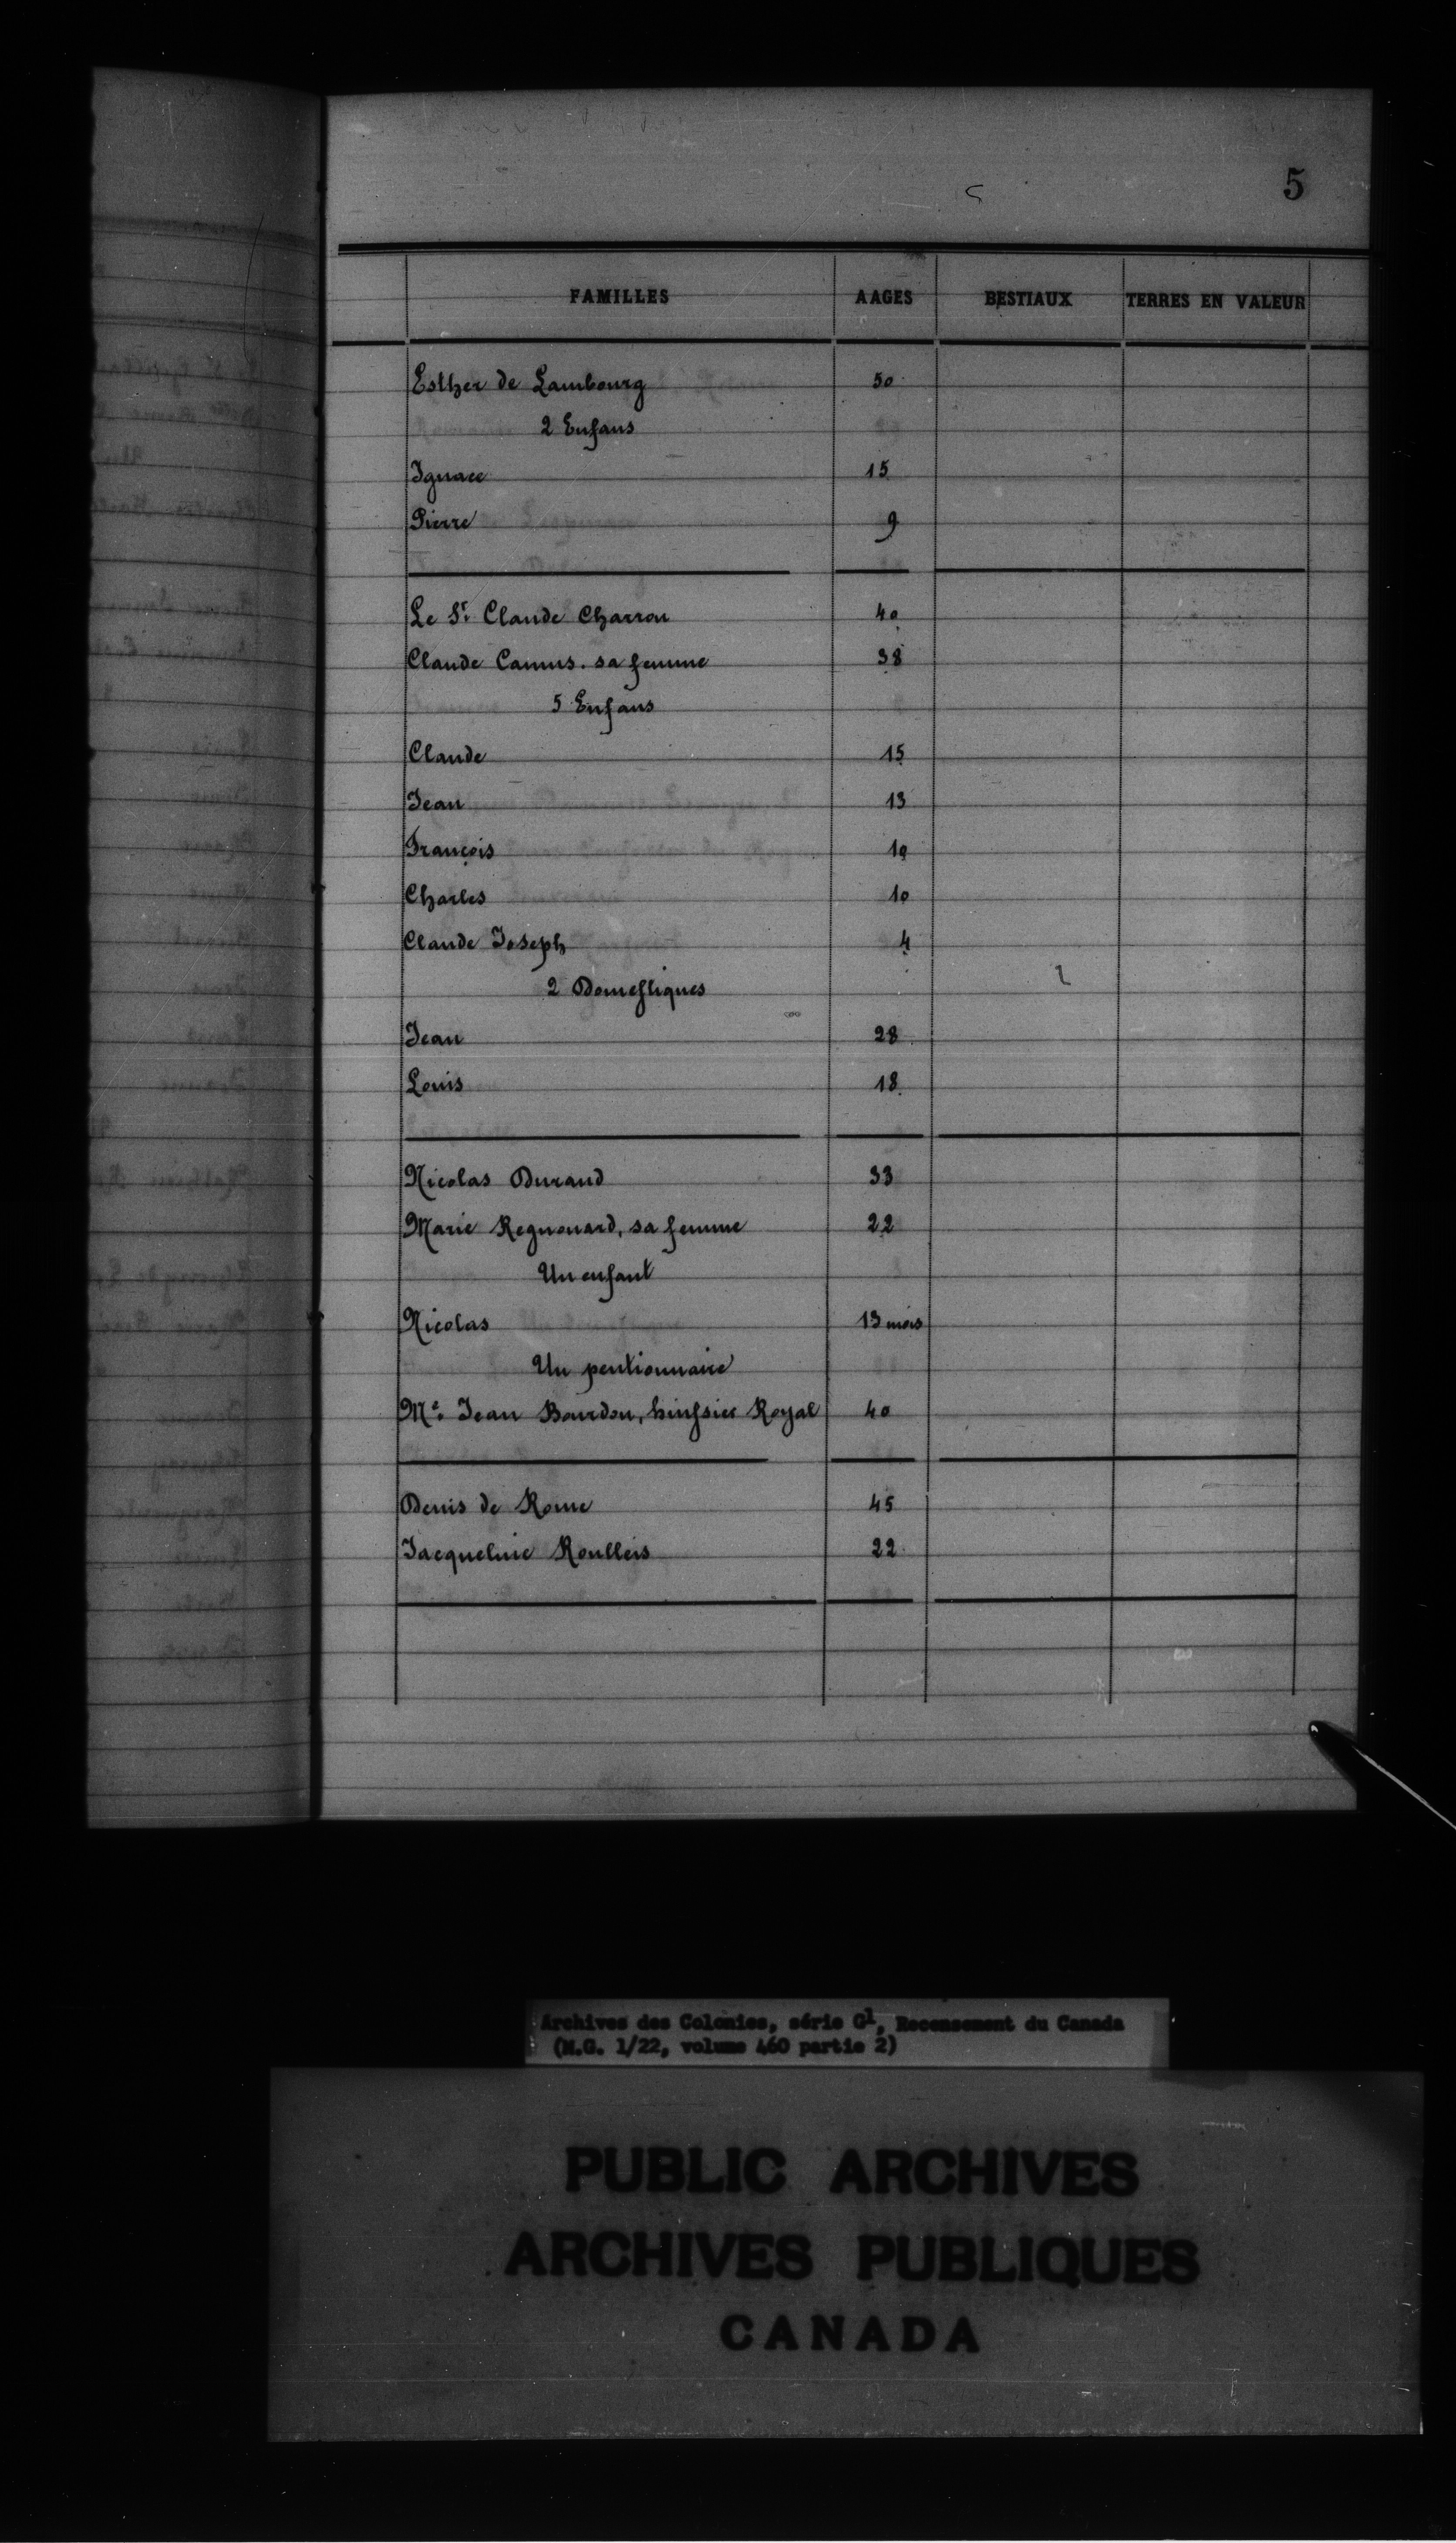 5
FAMILLES AAGES BESTIAUX TERRES EN VALEUR
Esther de Lambourg 50
2 Enfans
Ignace 15
Pierre 9
Le Sr. Claude Charron 40
Claude Camus, sa femme 38
5 Enfans
Claude 15
Jean 13
François 10
Charles 10
Claude Joseph 4
2 Domestiques
Jean 28
Louis 18
Nicolas Durand 33
Marie Regnouard, sa femme 22
Un enfant
Nicolas 13 mois
Un pentionnaire
Me. Jean Bourdon, huissier Royal 40
Denis de Rome 45
Jacqueline Roulleis 22
Archives des Colonies, série G1, Recensement du Canada
(M.G. 1/22, volume 460 partie 2)
PUBLIC ARCHIVES
ARCHIVES PUBLIQUES
CANADA